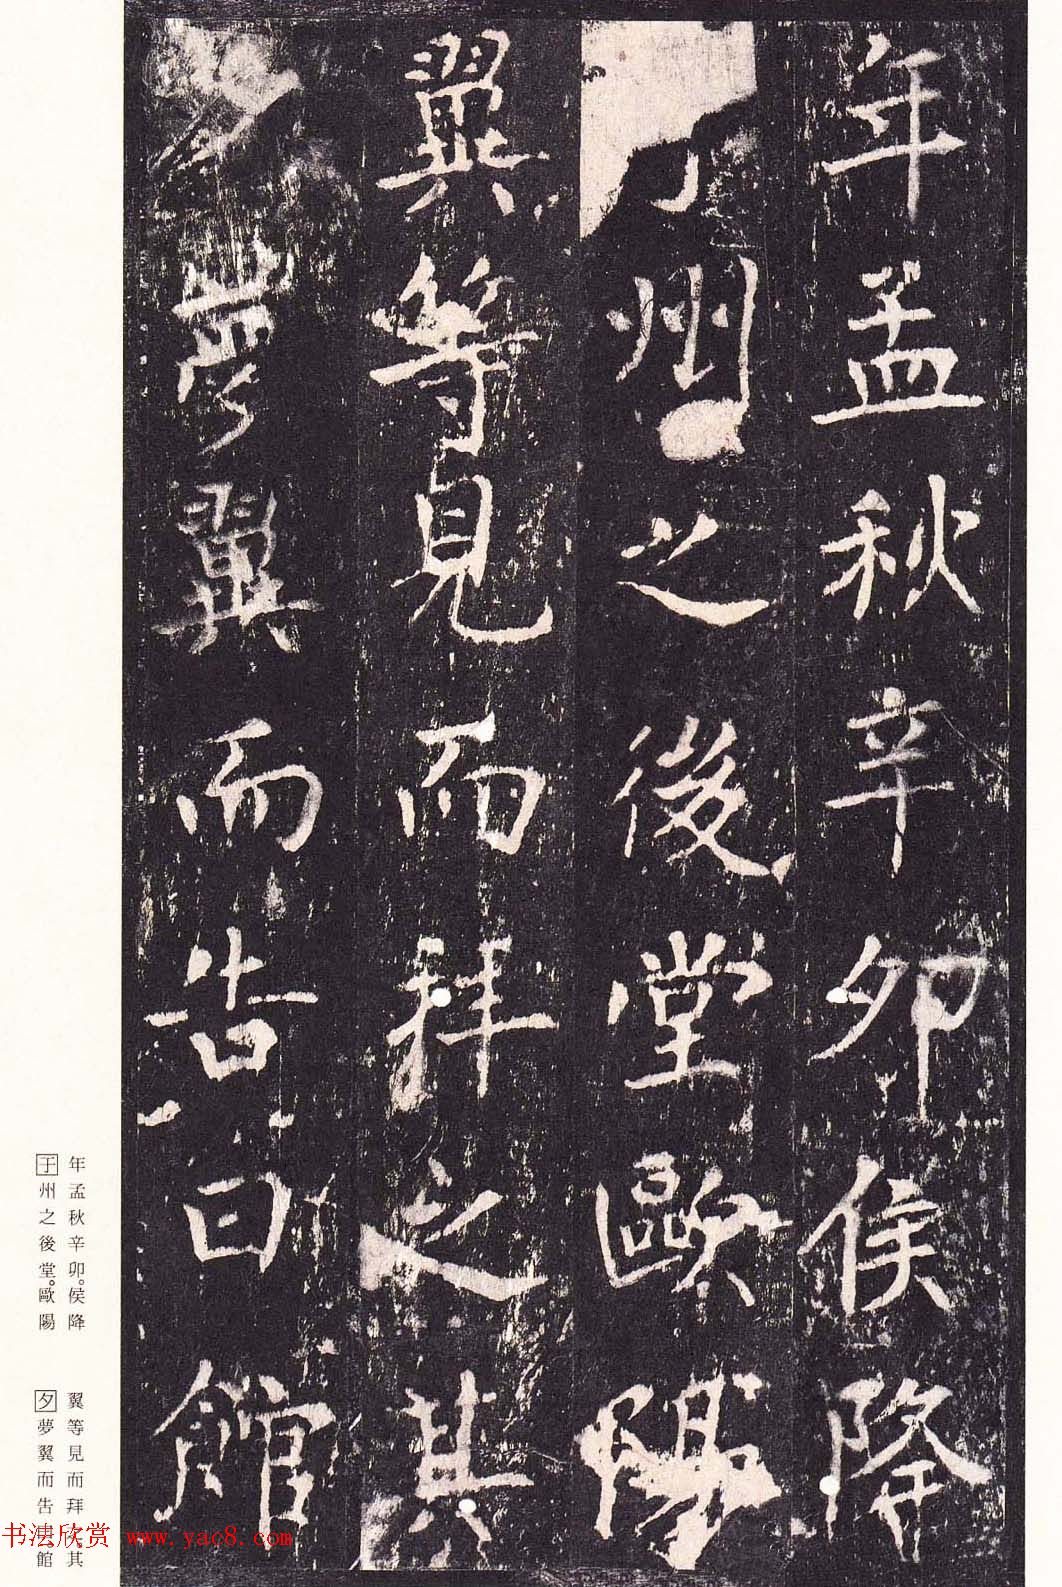 年孟秋辛卯侯降
于州之後堂歐陽
翼等見而拜之其
夕夢翼而告曰館
年孟秋辛卯。侯降
于州之後堂。歐陽
翼等見而拜之其
夕夢翼而告曰館
书法欣赏 www.yac8.com